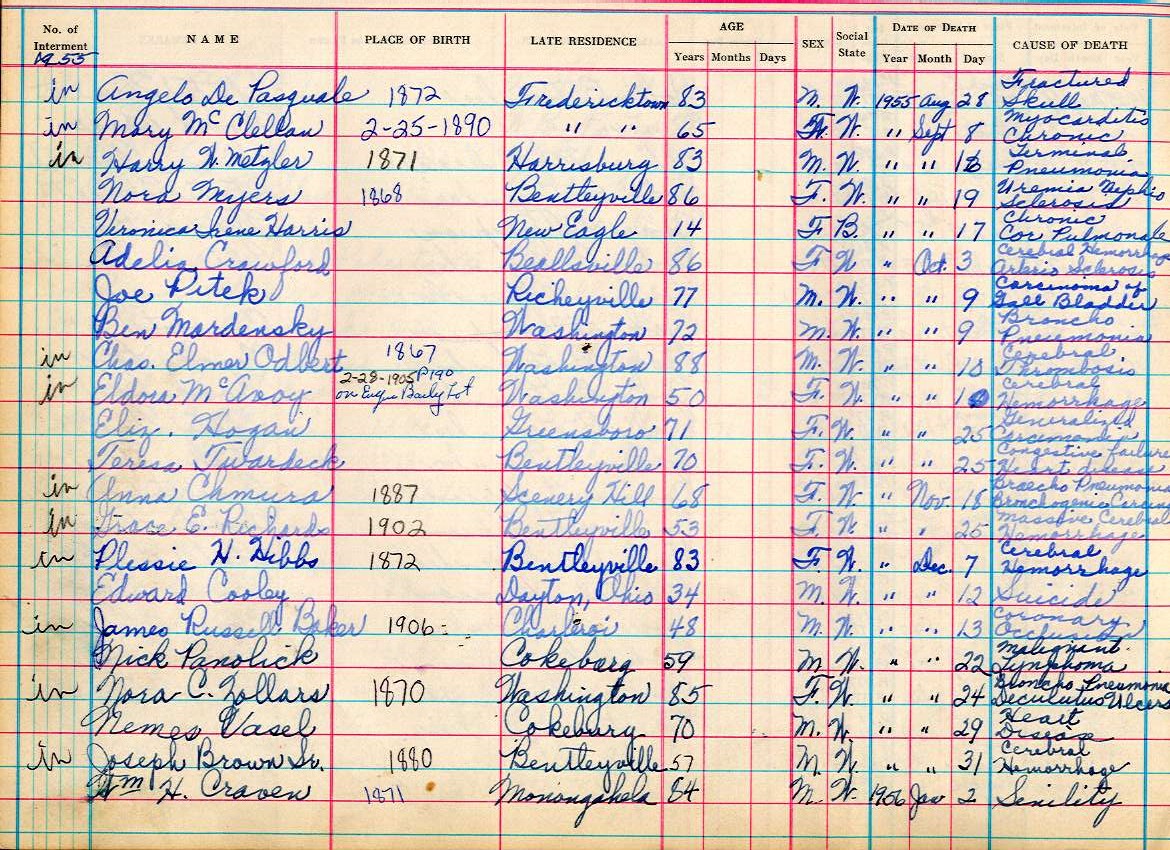 No. of Interment NAME PLACE OF BIRTH LATE RESIDENCE AGE Years Months Days SEX Social State DATE OF DEATH Year Month Day CAUSE OF DEATH
1955
in Angelo De Pasquale 1872 Fredericktown 83 M. W. 1955 Aug 28 Fractured Skull
in Mary McClellan 2-25-1890 " " 65 F. W. " Sept 8 Myocarditis Chronic
in Harry W. Metzler 1871 Harrisburg 83 M. W. " " 18 Terminal Pneumonia
Nora Myers 1868 Bentleyville 86 F. W. " " 19 Uremia Nephro Sclerosis
Veronica Irene Harris New Eagle 14 F B. " " 17 Chronic Cor Pulmonale
Adelia Crawford Beallsville 86 F W " Oct. 3 Cerebral Hemorrhage Arterio Sclerosis
Joe Pitek Richeyville 77 M. W. " " 9 Carcinoma of Gall Bladder
Ben Mordensky Washington 72 M. W. " " 9 Broncho Pneumonia
in Chas. Elmer Odbert 1867 Washington 88 M. W. " " 18 Cerebral Thrombosis
in Eldora McAvoy 2-28-1905 P190 on Lot Washington 50 F. W. " " Cerebral Hemorrhage
Eliz. Hogan Greensboro 71 F. W. " " 25 Generalized
Teresa Twardeck Bentleyville 70 F. W. " " 25 Congestive failure Heart disease
in Anna Chmura 1887 Scenery Hill 68 F. W. " Nov. 18 Pneumonia
in Grace E. Richards 1902 Bentleyville 53 F. W. " " 25 Massive Cerebral Hemorrhage
in Plessie H. Hibbs 1872 Bentleyville 83 F. W. " Dec. 7 Cerebral Hemorrhage
Edward Cooley Dayton, Ohio 34 M. W. " " 12 Suicide
in James Russell Baker 1906 Charleroi 48 M. W. " " 13 Coronary Occlusion
Nick Panolick Cokeburg 59 M W. " " 22 Malignant Lymphoma
in Nora C. Zollars 1870 Washington 85 F. W. " " 24 Broncho Pneumonia Ulcers
Nemes Vasel Cokeburg 70 M. W. " " 29 Heart Disease
in Joseph Brown Sr. 1880 Bentleyville 57 M W. " " 31 Cerebral Hemorrhage
Wm H. Craven 1871 Monongahela 84 M. W. 1956 Jan 2 Senility